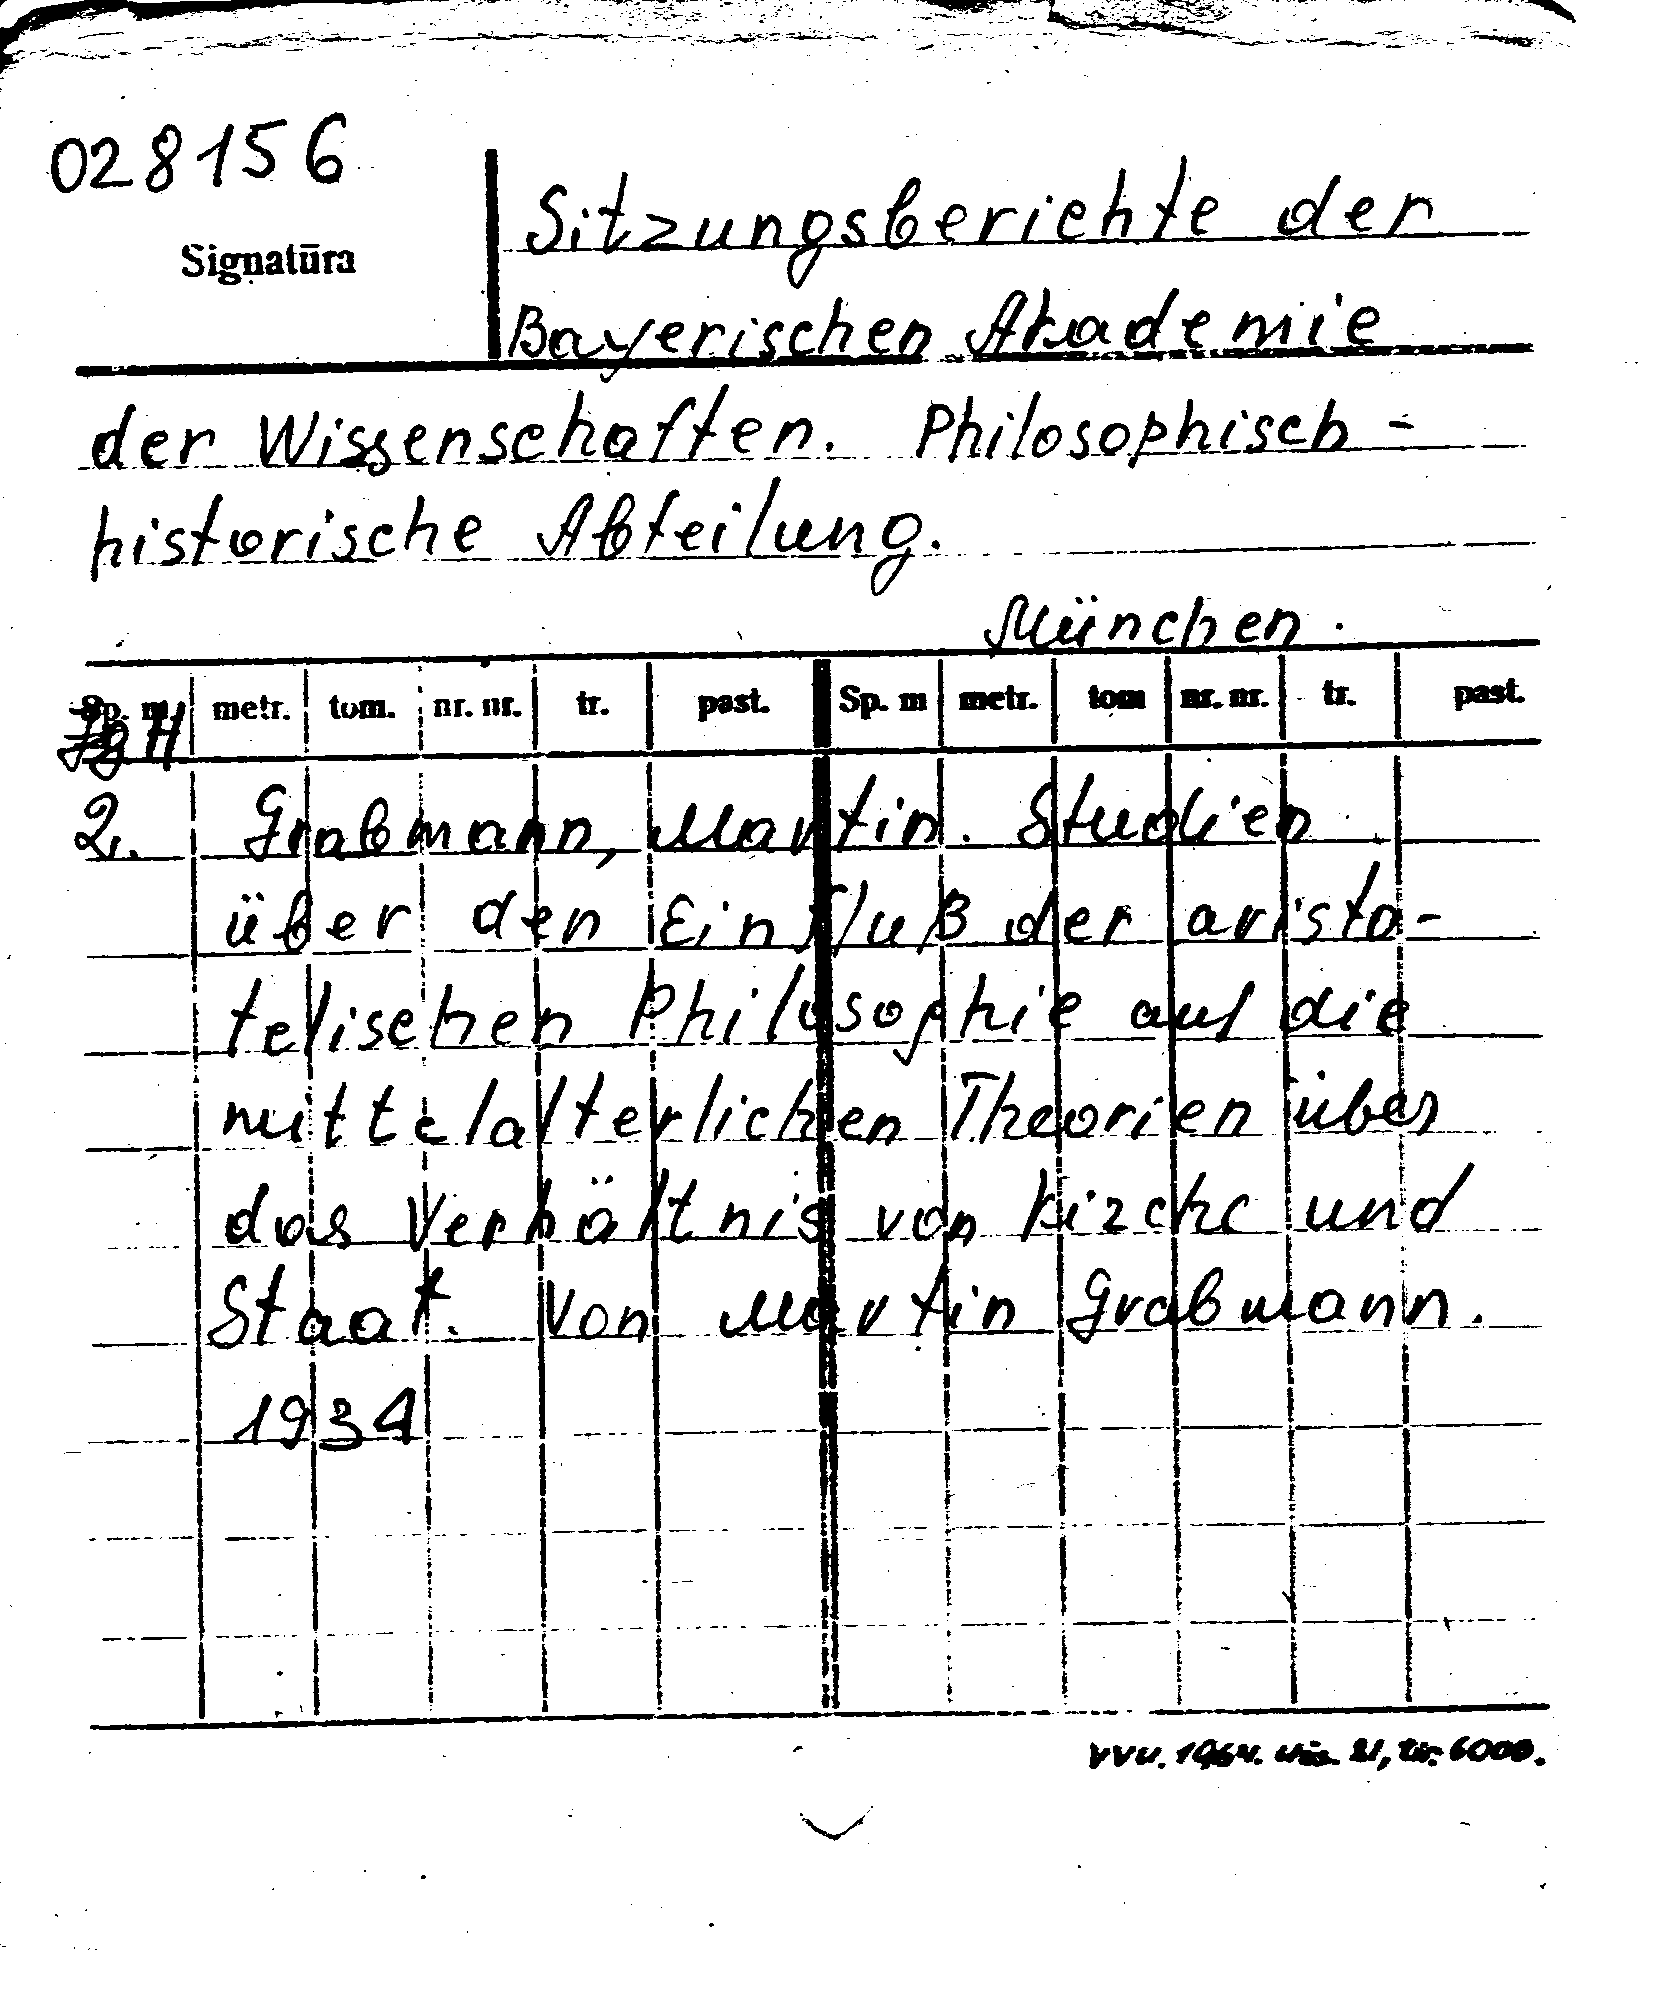 028156
Signatūra
Sitzungsberichte der
Bayerischen Akademie
der Wissenschaften. Philosophisch-
historische Abteilung.
München.
Sp. m. metr. tom. nr. nr. tr. past. Sp. m metr. tom nr. nr. tr. past.
H
2. Grabmann, Martin. Studien
über den Einfluß der aristo-
telischen Philosophie auf die
mittelalterlichen Theorien über
das Verhältnis von Kirche und
Staat. Von Martin Grabmann.
1934
VVU. 1964. 21, tir. 6000.